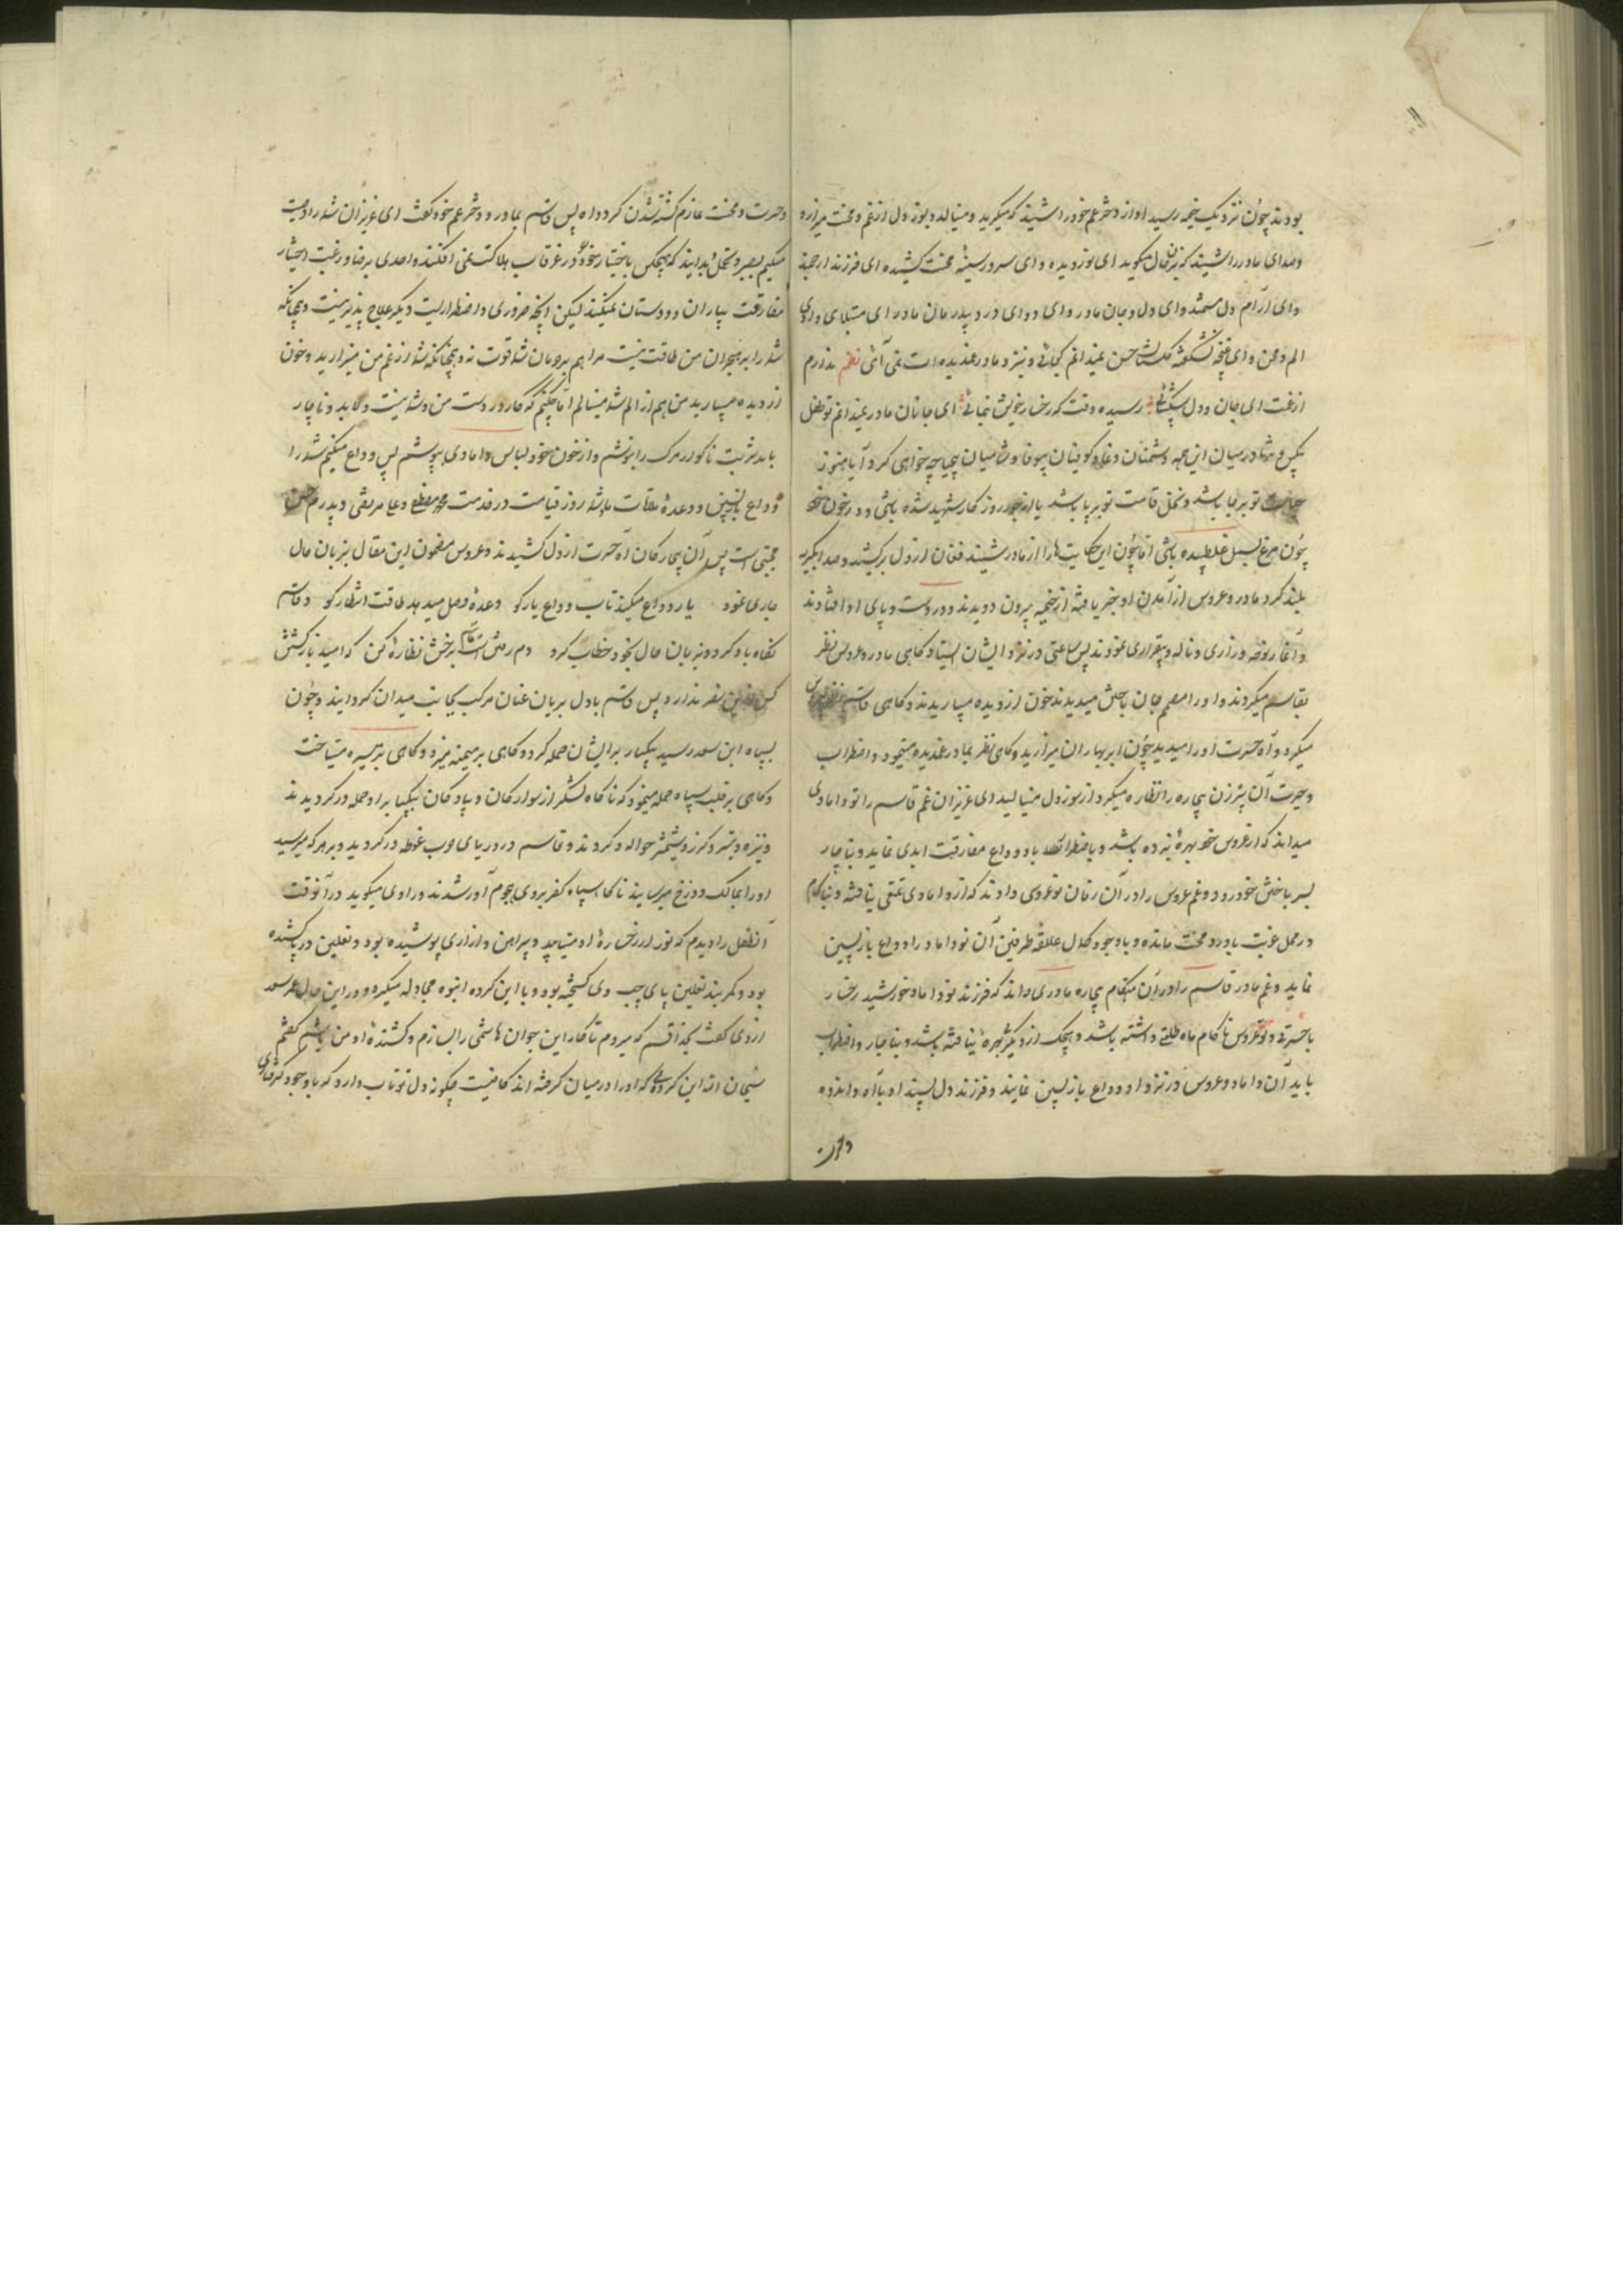 بودند چون نزدیک خیمه رسید آواز دختر عم خود را شنید که میگرید و مینالد و بسوز دل از غم و محنت میزارد
وصدای مادر را شنید که بزبان حال میگوید ای نور دیده و ای سرور سینه محنت کشیده ای فرزند ارجمند
وای آرام دل مستمند وای دل و جان مادر وای دوای درد بیدرمان مادر ای مبتلای وادی
الم و محن وای غنچه نشکفته گلستان حسن نمیدانم کجائی و نزد مادر غمدیده ات نمی آئی نظم ندارم
از غمت ای جان و دل شکیبائی رسیده وقت که رخسار خویش بنمائی ای جانان مادر نمیدانم تو طفل
بیکس و تنها در میان این همه دشمنان دغا و کوفیان بیوفا و شامیان بیحیا چه خواهی کرد آیا هنوز
تو بر جا باشد و نخل قامت تو بر پا باشد یا از جور روزگار شهید شده باشی و در خون خود
چون مرغ بسمل غلطیده باشی اما چون این حکایت ها را از مادر شنید فغان از دل برکشید و صدا بگریه
بلند کرد مادر و عروس از آمدن او خبر یافته از خیمه بیرون دویدند و در دست و پای او افتادند
و آغاز نوحه و زاری و ناله و بیقراری نمودند پس ساعتی در نزد ایشان ایستاد گاهی مادر و عروس نظر
بقاسم میکردند و او را مصمم جان باختن میدیدند خون از دیده میباریدند و گاهی قاسم نظر بعروس
میکرد و آه حسرت او را میدید چون ابر بهاران میزارید و گاهی نظر بمادر غمدیده مینمود و اضطراب
و حیرت آن پیرزن بیچاره را نظاره میکرد از سوز دل مینالید ای عزیزان غم قاسم را نو دامادی
میداند که از عروس خود بهرهٔ نبرده باشد و باضطرار با او وداع مفارقت ابدی نماید و بناچار
سر باختن خود رود و غم عروس را در آن زمان نو عروسی داند که از دامادی تمتعی نیافته و ناکام
در محل غربت با درد و محنت مانده و با وجود کمال علاقه طرفین آن نو داماد را وداع بازپسین
نماید و غم مادر قاسم را در آن هنگام بیچاره مادری داند که فرزند نو داماد خورشید رخسار
با حسرتی و نو عروس ناکام ماه طلعتی داشته باشد و هیچیک از دیگری بهره نیافته باشد و بناچار و اضطراب
باید آن داماد و عروس در نزد او وداع بازپسین نمایند و فرزند دل پسند او با آه و اندوه
و حسرت و محنت عازم کشته شدن گردد آه پس قاسم بمادر و دختر عم خود گفت ای عزیزان شما را وصیت
میکنم بصبر و تحمل بدانید که هیچکس باختیار خود خود را در غرقاب هلاکت نمی افکند و احدی برضا و رغبت اختیار
مفارقت یاران و دوستان نمیکند لیکن آنچه ضروری و اضطراریست دیگر علاج پذیر نیست و چنانکه
شما را بر هجران من طاقت نیست مرا هم بر حرمان شما قوت نه و چنانکه شما از غم من میزارید و خون
از دیده میبارید من هم از الم شما مینالم اما چکنم که کار در دست من و شما نیست و لابد و ناچار
باید شربت ناگوار مرگ را بنوشم و از خون خود لباس دامادی بپوشم پس وداع میکنم شما را
وداع بازپسین و وعدهٔ ملاقات ما و شما روز قیامت در خدمت محمد مصطفی و علی مرتضی و پدرم حسن
مجتبی است پس آن بیچارگان آه حسرت از دل کشیدند و عروس مضمون این مقال بزبان حال
جاری نمود یار وداع میکند تاب وداع یار کو وعدهٔ وصل میدهد طاقت انتظار کو و قاسم
نگاه باو کرد و بزبان حال بخود خطاب کرد دم رفتن است قاسم برخش نظارهٔ کن که امید بازگشتن
کس ازین سفر ندارد پس قاسم با دل بریان عنان مرکب بجانب میدان گردانید و چون
بسپاه ابن سعد رسید یکبار بر ایشان حمله کرد و گاهی بر میمنه میزد و گاهی بر میسره میتاخت
و گاهی بر قلب سپاه حمله مینمود که ناگاه لشکر از سوارگان و پیادگان بیکبار بر او حمله در گردیدند
و نیزه و تیر و گرز و شمشیر حواله او کردند و قاسم در دریای حرب غوطه در گردید و بر هر که میرسید
او را بمالک دوزخ میرسانید تا آنکه سپاه کفر بر وی هجوم آور شدند و راوی میگوید در آنوقت
آن طفل را دیدم که نور از رخسارهٔ او میتابید و پیراهن و ازاری پوشیده بود و نعلین در پا کشیده
بود و کمر بند نعلین پای چپ وی گسیخته بود و با این گروه انبوه مجادله میکرد و در این حال عمر سعد
ازدی گفت بخدا قسم که میروم تا کار این جوان هاشمی را بسازم و کشندهٔ او من باشم گفتم
سبحان الله این گروهی که او را در میان گرفته اند کافیست چگونه دل تو تاب دارد که با وجود گرفتاری